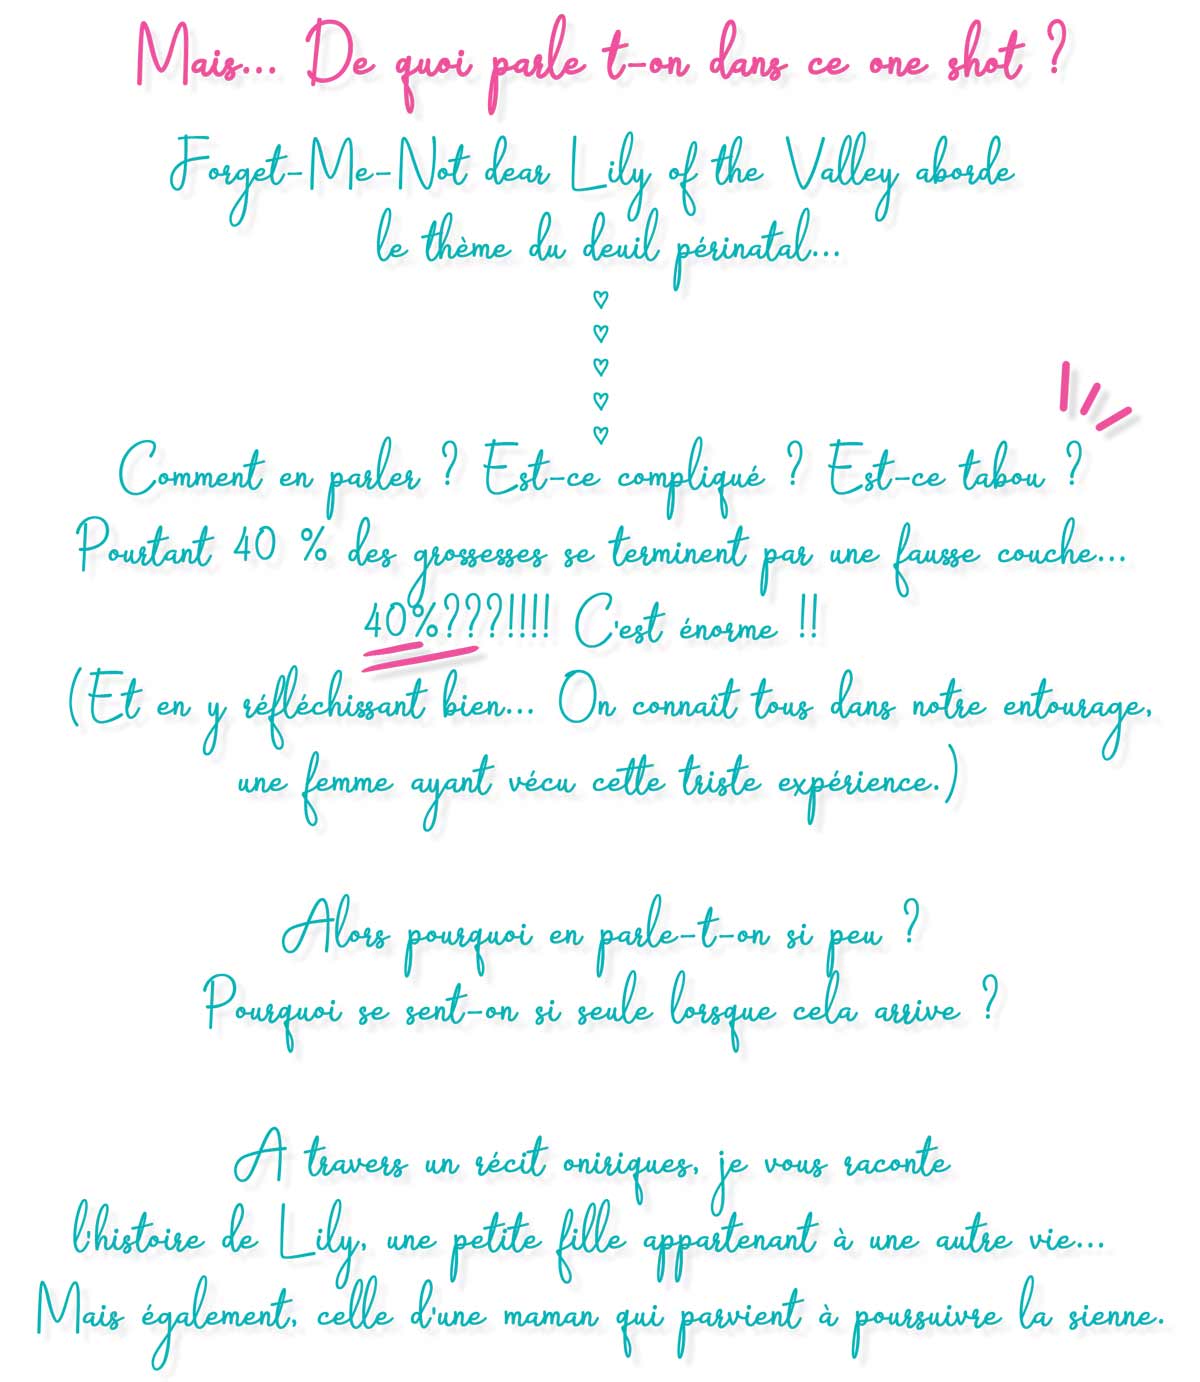 Mais... De quoi parle t-on dans ce one shot ?
Forget-Me-Not dear Lily of the Valley aborde
le thème du deuil périnatal...
Comment en parler ? Est-ce compliqué ? Est-ce tabou ?
Pourtant 40 % des grossesses se terminent par une fausse couche...
40%???!!!! C'est énorme !!
(Et en y réfléchissant bien... On connaît tous dans notre entourage,
une femme ayant vécu cette triste expérience.)
Alors pourquoi en parle-t-on si peu ?
Pourquoi se sent-on si seule lorsque cela arrive ?
A travers un récit oniriques, je vous raconte
l'histoire de Lily, une petite fille appartenant à une autre vie...
Mais également, celle d'une maman qui parvient à poursuivre la sienne.